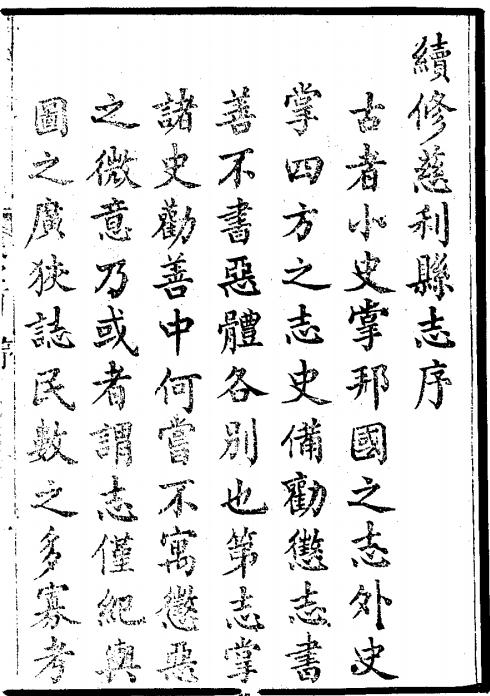 續修慈利縣志序
古者小史掌邦國之志外史
掌四方之志史備勸懲志書
善不書惡體各別也第志掌
諸史勸善中何嘗不寓懲惡
之微意乃或者謂志僅紀輿
圖之廣狹誌民數之多寡考